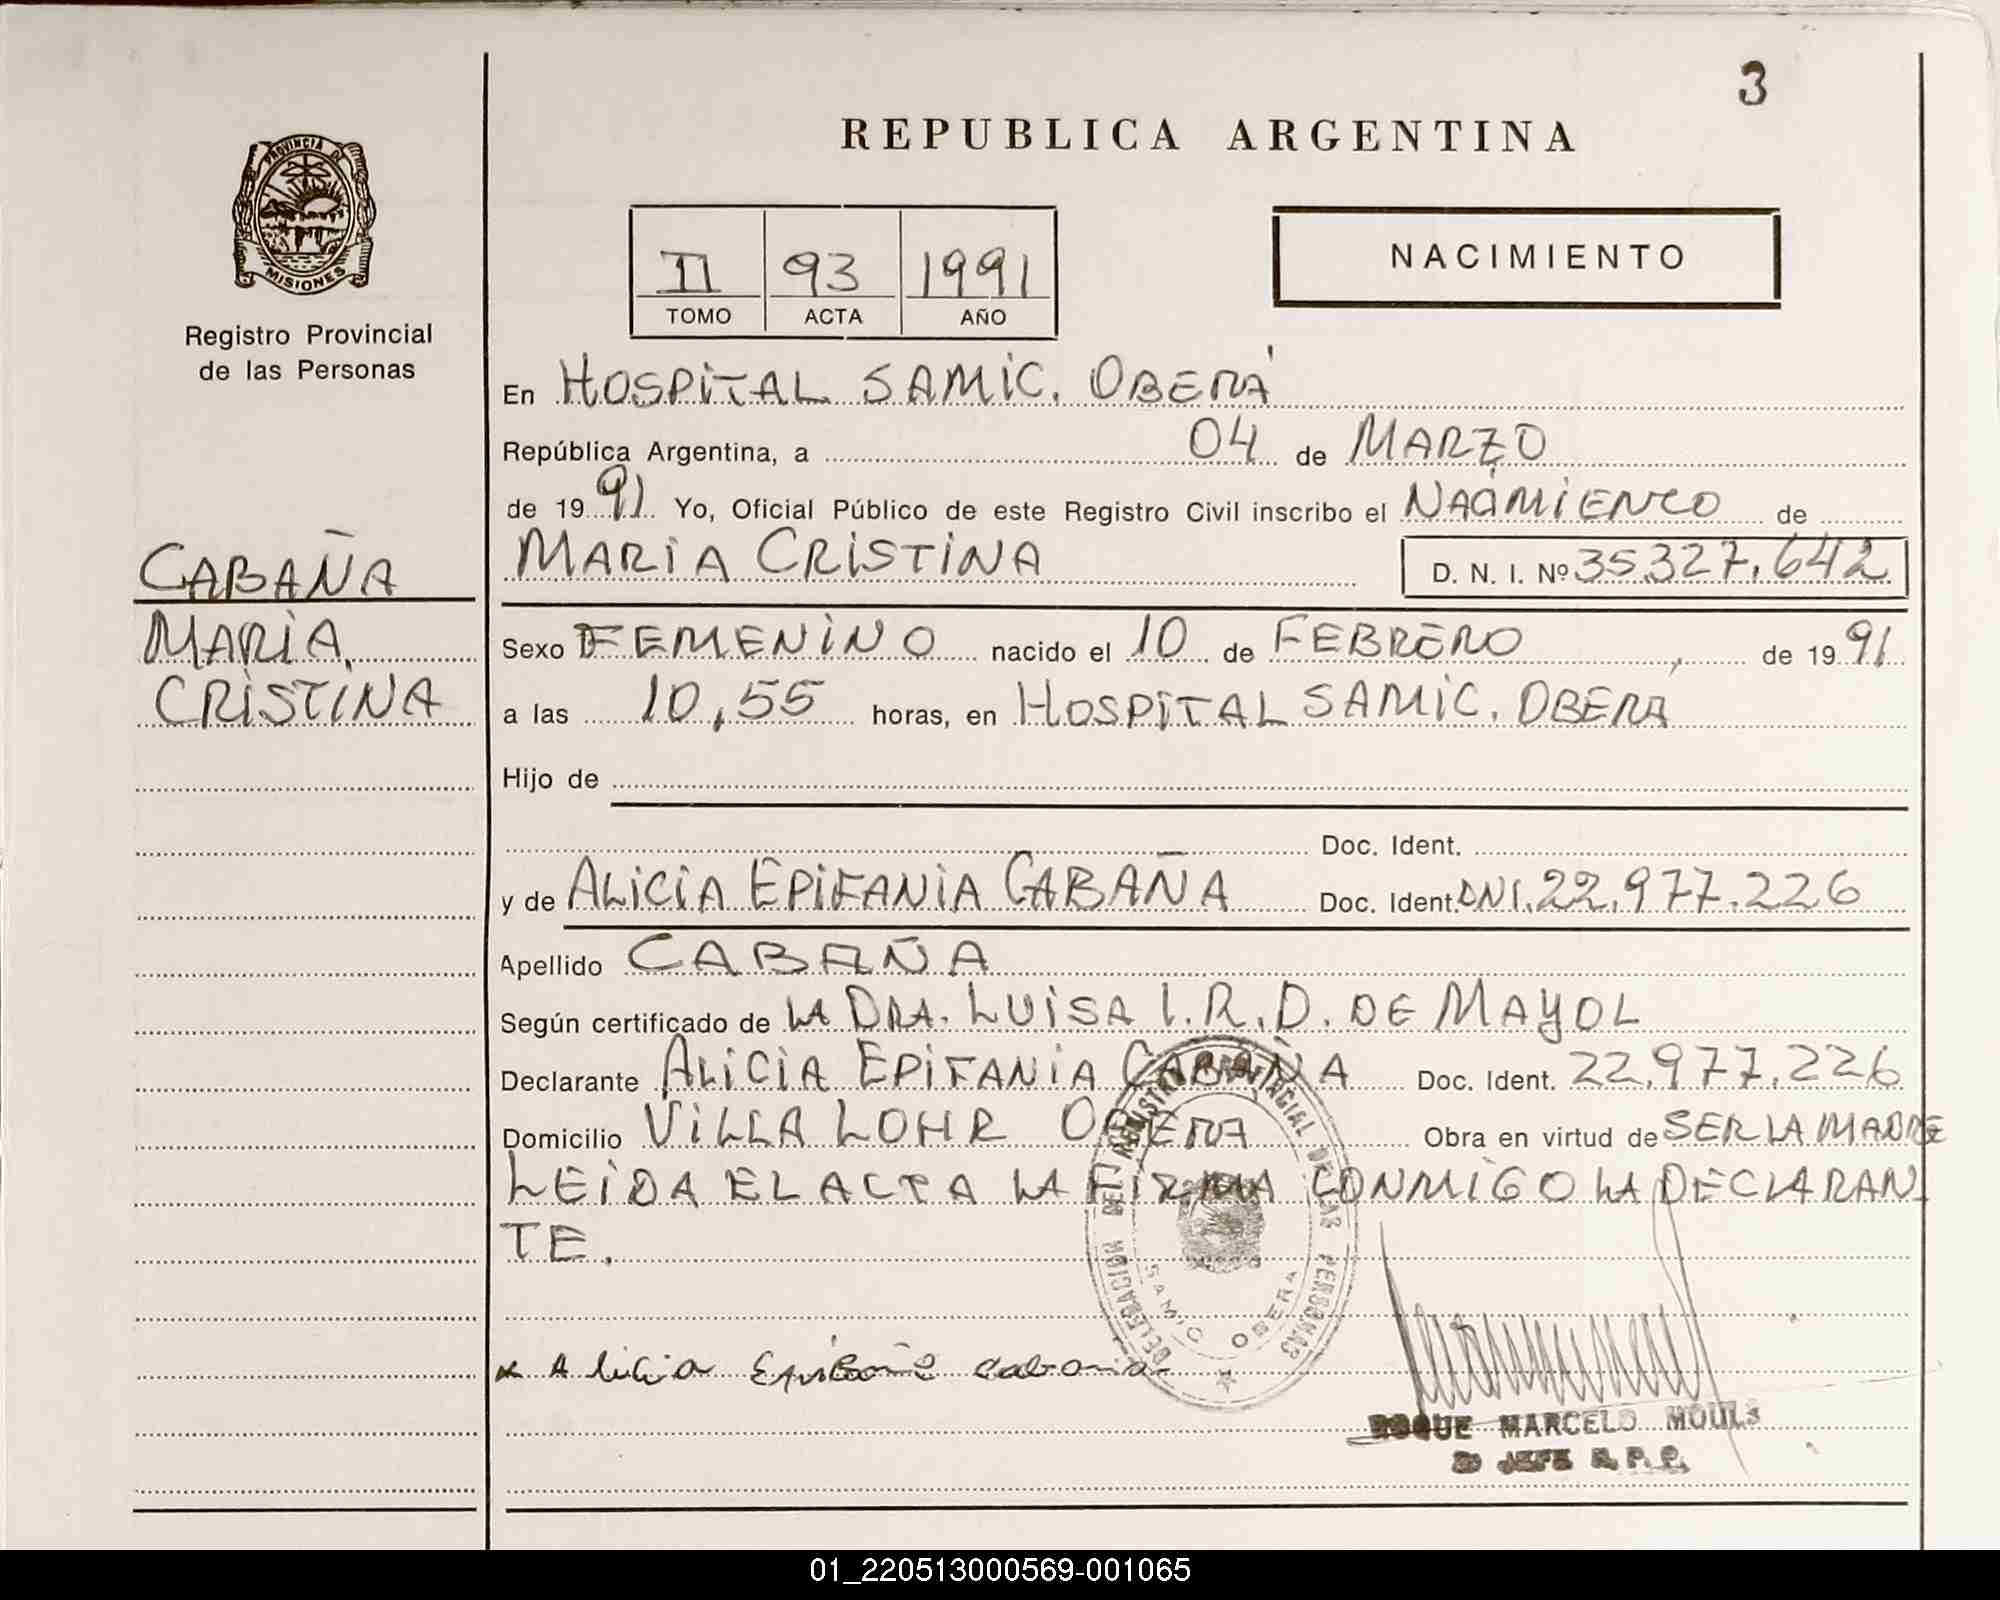 3
REPUBLICA ARGENTINA
PROVINCIA DE
MISIONES
Registro Provincial
de las Personas
II 93 1991
TOMO ACTA AÑO
NACIMIENTO
En HOSPITAL SAMIC. OBERÁ
República Argentina, a 04 de MARZO
de 1991 Yo, Oficial Público de este Registro Civil inscribo el NACIMIENTO de
MARIA CRISTINA D. N. I. Nº 35.327.642
CABAÑA
MARIA
CRISTINA
Sexo FEMENINO nacido el 10 de FEBRERO de 1991
a las 10,55 horas, en HOSPITAL SAMIC. OBERÁ
Hijo de
Doc. Ident.
y de ALICIA EPIFANIA CABAÑA Doc. Ident. DNI. 22.977.226
Apellido CABAÑA
Según certificado de LA DRA. LUISA I.R.D. DE MAYOL
Declarante ALICIA EPIFANIA CABAÑA Doc. Ident. 22.977.226
Domicilio VILLA LOHR OBERA Obra en virtud de SER LA MADRE
LEIDA EL ACTA LA FIRMA CONMIGO LA DECLARAN
TE.
DELEGACION DEL REGISTRO PROVINCIAL DE LAS PERSONAS
SAMIC OBERA
x Alicia Epifania Cabaña
ROQUE MARCELO MOULS
JEFE R.P.P.
01_220513000569-001065